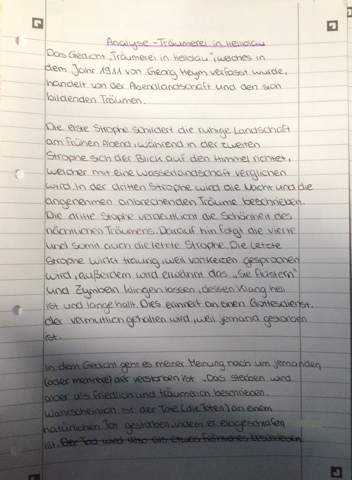 Analyse - Träumerei in Hellblau
Das Gedicht "Träumerei in Hellblau", welches in
dem Jahr 1911 von Georg Heym verfasst wurde,
handelt von der Abendlandschaft und den sich
bildenden Träumen.
Die erste Strophe schildert die ruhige Landschaft
am frühen Abend, während in der zweiten
Strophe sich der Blick auf den Himmel richtet,
welcher mit eine Wasserlandschaft verglichen
wird. In der dritten Strophe wird die Nacht und die
angenehmen anbrechenden Träume beschrieben.
Die dritte Stophe verdeutlicht die Schönheit des
nächtlichen Träumens. Darauf hin folgt die vierte
und somit auch die letzte Strophe. Die letzte
Strophe wirkt traurig, weil von Kerzen gesprochen
wird, außerdem wird erwähnt das "Sie flüstern"
und Zymbeln klingen lassen, dessen Klang hell
ist und lange hallt. Dies erinnert an einen Gottesdienst,
der vermutlich gehalten wird, weil jemand gestorben
ist.
In dem Gedicht geht es meiner Meinung nach um jemanden
(oder mehrere) der verstorben ist. Das sterben wird
aber als friedlich und träumerisch beschrieben.
Wahrscheinlich ist der Tote (die Toten) an einem
natürlichen Tot gestorben, indem er eingeschlafen
ist. Der Tod wird also als etwas beschrieben